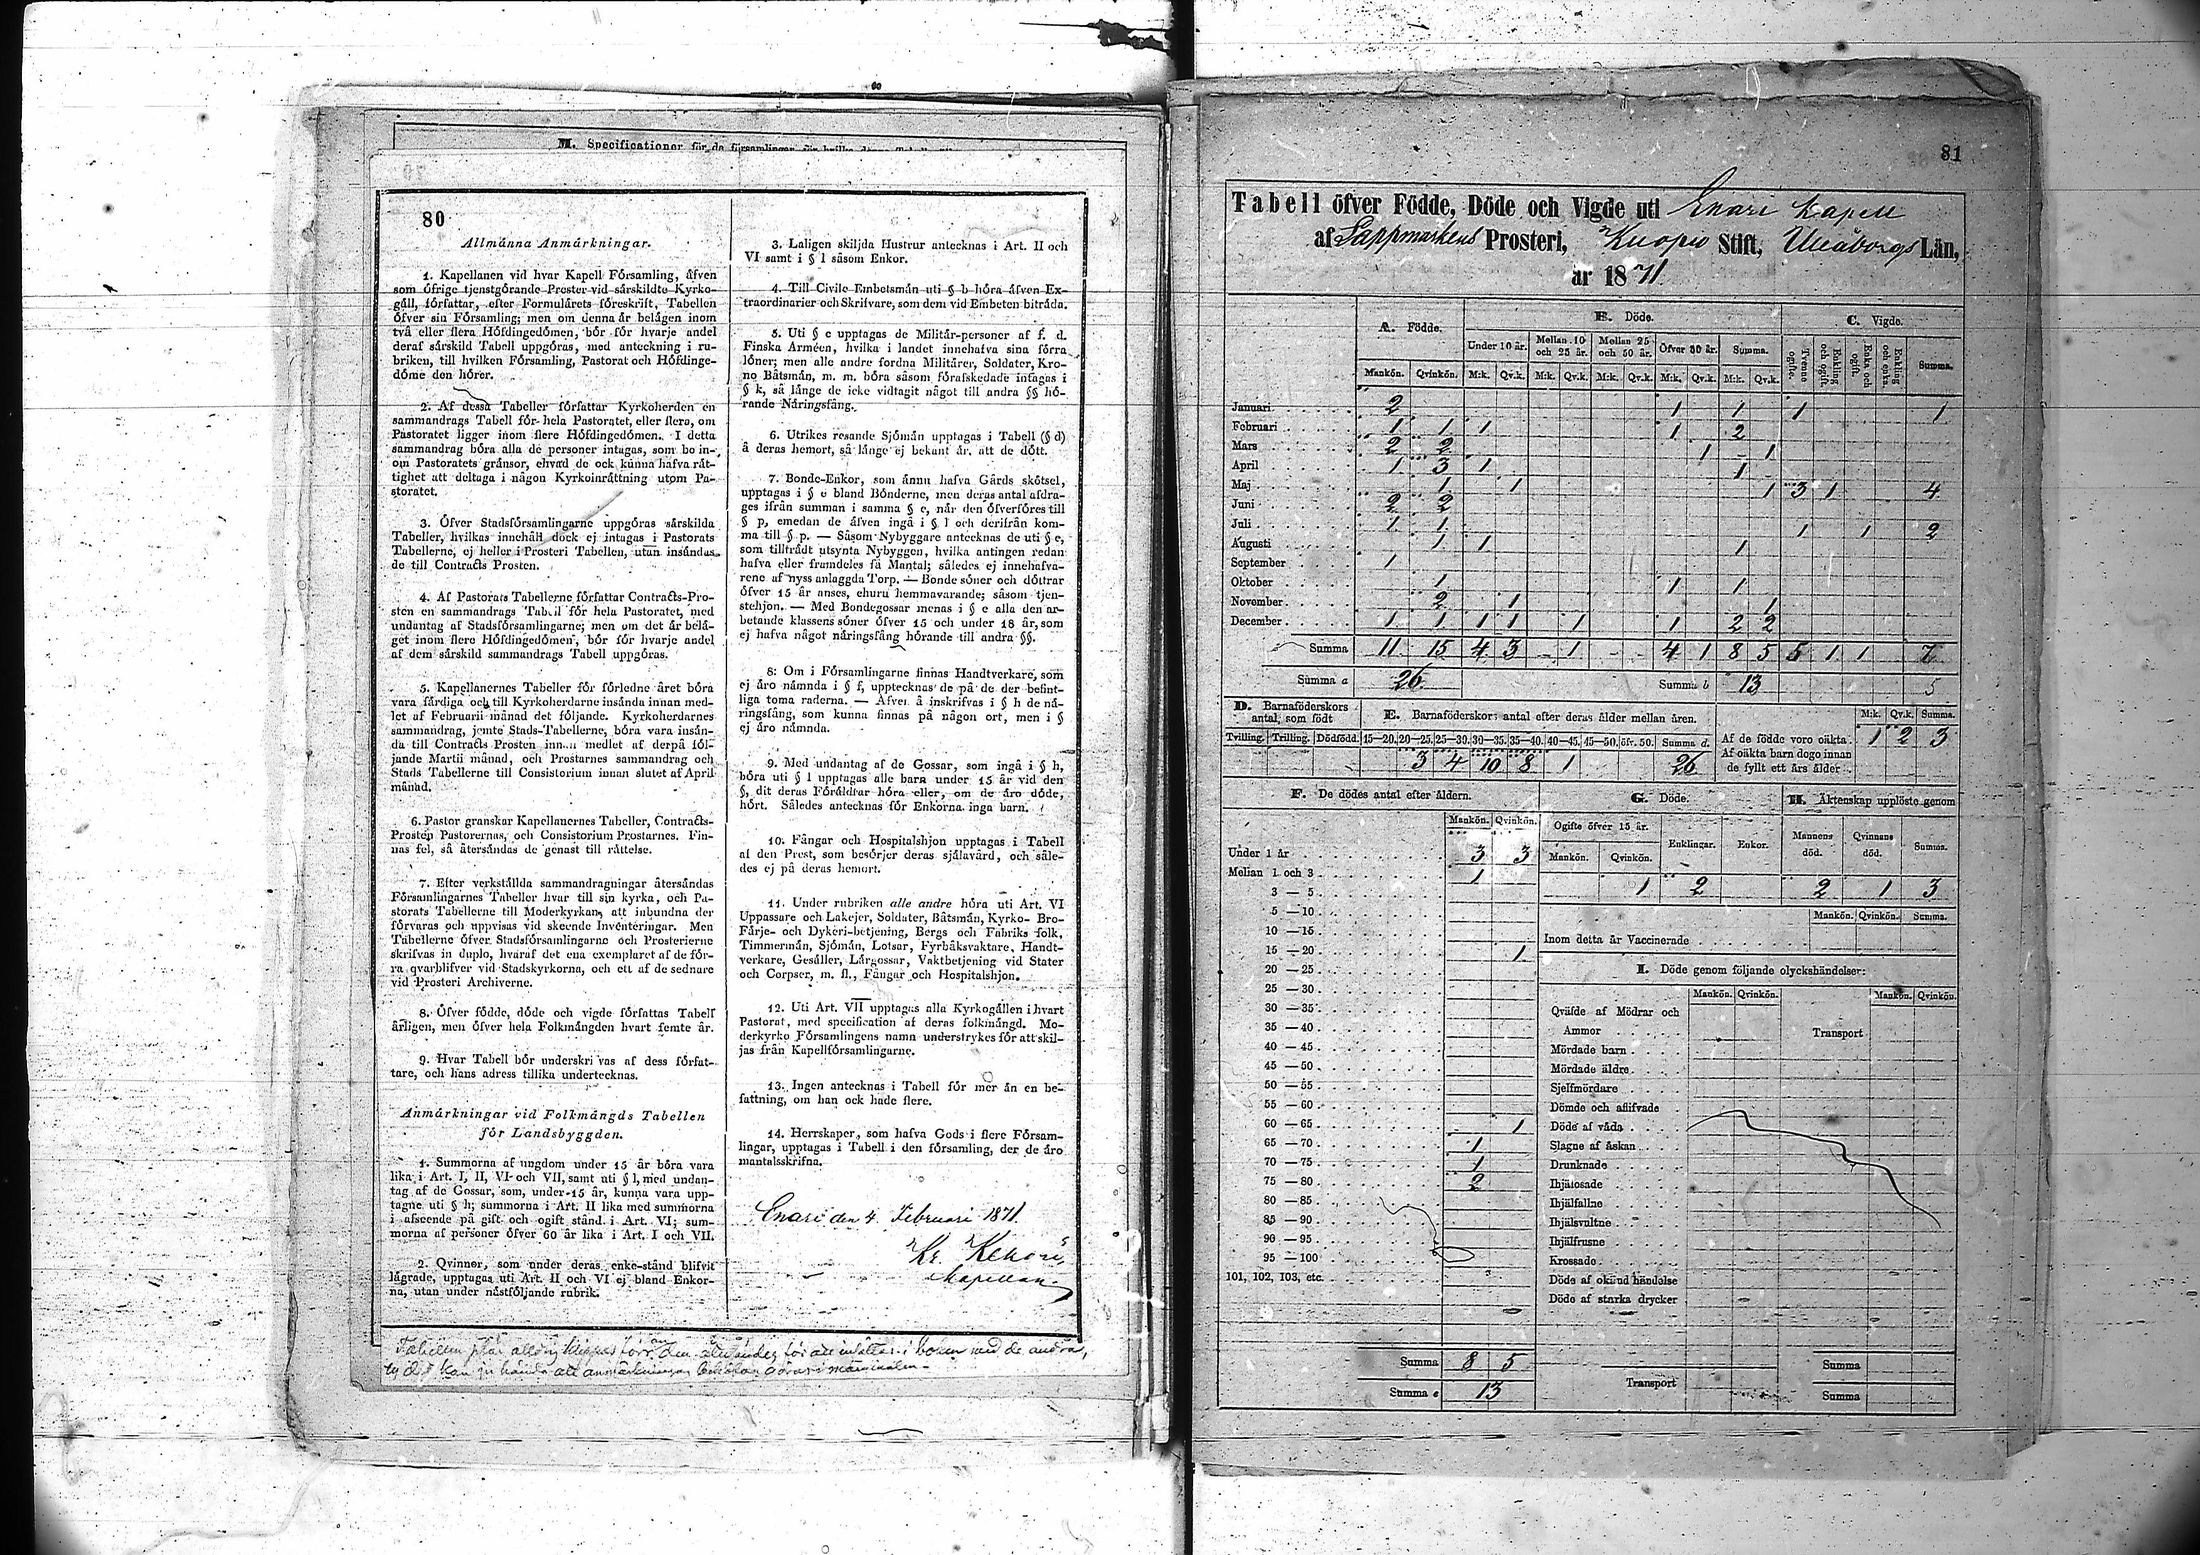 M. Specificationer för de församlingar
80
Allmänna Anmärkningar.
1. Kapellanen vid hvar Kapell Församling, äfven
som öfrige tjenstgörande Prester vid särskildte Kyrko-
gäll, författar, efter Formulärets föreskrift, Tabellen
öfver sin Församling; men om denna är belägen inom
två eller flera Höfdingedömen, bör för hvarje andel
deraf särskild Tabell uppgöras, med anteckning i ru-
briken, till hvilken Församling, Pastorat och Höfdinge-
döme den hörer.
2. Af dessa Tabeller författar Kyrkoherden en
sammandrags Tabell för hela Pastoratet, eller flera, om
Pastoratet ligger inom flere Höfdingedömen. I detta
sammandrag böra alla de personer intagas, som bo in-
om Pastoratets gränsor, ehvad de ock kunna hafva rät-
tighet att deltaga i någon Kyrkoinrättning utom Pa-
storatet.
3. Öfver Stadsförsamlingarne uppgöras särskilda
Tabeller, hvilkas innehåll dock ej intagas i Pastorats
Tabellerne, ej heller i Prosteri Tabellen, utan insändas
de till Contracts Prosten.
4. Af Pastorats Tabellerne författar Contracts-Pro-
sten en sammandrags Tabell för hela Pastoratet, med
undantag af Stadsförsamlingarne; men om det är belä-
get inom flere Höfdingedömen, bör för hvarje andel
af dem särskild sammandrags Tabell uppgöras.
5. Kapellanernes Tabeller för förledne året böra
vara färdiga och till Kyrkoherdarne insända innan med-
let af Februarii månad det följande. Kyrkoherdarnes
sammandrag, jemte Stads-Tabellerne, böra vara insän-
da till Contracts Prosten innan medlet af derpå föl-
jande Martii månad, och Prostarnes sammandrag och
Stads Tabellerne till Consistorium innan slutet af April
månad.
6. Pastor granskar Kapellanernes Tabeller, Contracts-
Prosten Pastorernas, och Consistorium Prostarnes. Fin-
nas fel, så återsändas de genast till rättelse.
7. Efter verkställda sammandragningar återsändas
Församlingarnes Tabeller hvar till sin kyrka, och Pa-
storats Tabellerne till Moderkyrkan, att inbundna der
förvaras och uppvisas vid skeende Inventeringar. Men
Tabellerne öfver Stadsförsamlingarne och Prosterierne
skrifvas in duplo, hvaraf det ena exemplaret af de för-
ra qvarblifver vid Stadskyrkorna, och ett af de sednare
vid Prosteri Archiverne.
8. Öfver födde, döde och vigde författas Tabell
årligen, men öfver hela Folkmängden hvart femte år.
9. Hvar Tabell bör underskrivas af dess förfat-
tare, och hans adress tillika undertecknas.
Anmärkningar vid Folkmängds Tabellen
för Landsbyggden.
1. Summorna af ungdom under 15 år böra vara
lika i Art. I, II, VI och VII, samt uti § l, med undan-
tag af de Gossar, som, under 15 år, kunna vara upp-
tagne uti § h; summorna i Art. II lika med summorna
i afseende på gift och ogift stånd i Art. VI; sum-
morna af personer öfver 60 år lika i Art. I och VII.
2. Qvinnor, som under deras enke-stånd blifvit
lägrade, upptagas uti Art. II och VI ej bland Enkor-
na, utan under nästföljande rubrik.
3. Laligen skiljda Hustrur antecknas i Art. II och
VI samt i § l såsom Enkor.
4. Till Civile Embetsmän uti § b höra äfven Ex-
traordinarier och Skrifvare, som dem vid Embeten biträda.
5. Uti § c upptagas de Militär-personer af f. d.
Finska Arméen, hvilka i landet innehafva sina förra
löner; men alle andre fordna Militärer, Soldater, Kro-
no Båtsmän, m. m. böra såsom förafskedade intagas i
§ k, så länge de icke vidtagit något till andra §§ hö-
rande Näringsfång.
6. Utrikes resande Sjömän upptagas i Tabell (§ d)
å deras hemort, så länge ej bekant är, att de dött.
7. Bonde-Enkor, som ännu hafva Gårds skötsel,
upptagas i § e bland Bönderne, men deras antal afdra-
ges ifrån summan i samma § e, när den öfverföres till
§ p, emedan de äfven ingå i § l och derifrån kom-
ma till § p. — Såsom Nybyggare antecknas de uti § e,
som tillträdt utsynta Nybyggen, hvilka antingen redan
hafva eller framdeles få Mantal; således ej innehafva-
rene af nyss anlaggda Torp. — Bonde söner och döttrar
öfver 15 år anses, ehuru hemmavarande, såsom tjen-
stehjon. — Med Bondegossar menas i § e alla den ar-
betande klassens söner öfver 15 och under 18 år, som
ej hafva något näringsfång hörande till andra §§.
8. Om i Församlingarne finnas Handtverkare, som
ej äro nämnda i § f, upptecknas de på de der befint-
liga toma raderna. — Äfven å inskrifvas i § h de nä-
ringsfång, som kunna finnas på någon ort, men i §
ej äro nämnda.
9. Med undantag af de Gossar, som ingå i § h,
böra uti § l upptagas alle barn under 15 år vid den
§, dit deras Föräldrar höra eller, om de äro döde,
hört. Således antecknas för Enkorna inga barn.
10. Fångar och Hospitalshjon upptagas i Tabell
af den Prest, som besörjer deras själavård, och såle-
des ej på deras hemort.
11. Under rubriken alle andre höra uti Art. VI
Uppassare och Lakejer, Soldater, Båtsmän, Kyrko- Bro-
Färje- och Dykeri-betjening, Bergs och Fabriks folk,
Timmermän, Sjömän, Lotsar, Fyrbåksvaktare, Handt-
verkare, Gesäller, Lärgossar, Vaktbetjening vid Stater
och Corpser, m. fl., Fångar och Hospitalshjon.
12. Uti Art. VII upptagas alla Kyrkogällen i hvart
Pastorat, med specification af deras folkmängd. Mo-
derkyrko Församlingens namn understrykes för att skil-
jas från Kapellförsamlingarne.
13. Ingen antecknas i Tabell för mer än en be-
fattning, om han ock hade flere.
14. Herrskaper, som hafva Gods i flere Försam-
lingar, upptagas i Tabell i den församling, der de äro
mantalsskrifna.
Enari den 4 Februari 1871.
Kapellan.
81
Tabell öfver Födde, Döde och Vigde uti Enari Kapell
af Lappmarkens Prosteri, Kuopio Stift, Uleåborgs Län,
år 1871.
A. Födde. B. Döde. C. Vigde.
Under 10 år. Mellan 10 och 25 år. Mellan 25 och 50 år. Öfver 50 år. Summa. Tvenne ogifte. Enkling och ogift. Enka och ogift. Enkling och enka Summa.
Mankön. Qvinkön. M:k. Qv.k. M:k. Qv.k. M:k. Qv.k. M:k. Qv.k. M:k. Qv.k.
Januari 2 1 1 1 1
Februari 1 1 1 1 2
Mars 2 2 1 1
April 1 3 1 1
Maj 1 1 1 3 1 4
Juni 2 2
Juli 1 1 1 1 2
Augusti 1 1 1
September 1
Oktober 1 1 1
November 2 1 1
December 1 1 1 1 1 1 2 2
Summa 11 15 4 3 1 4 1 8 5 5 1 1 7
Summa a 26 Summa b 13 5
D. Barnaföderskors antal, som födt E. Barnaföderskors antal efter deras ålder mellan åren. M:k. Qv.k. Summa.
Tvilling. Trilling. Dödfödd. 15—20. 20—25. 25—30. 30—35. 35—40. 40—45. 45—50. öfv. 50. Summa d. Af de födde voro oäkta 1 2 3
3 4 10 8 1 26 Af oäkta barn dogo innan
de fyllt ett års ålder
F. De dödes antal efter åldern. G. Döde. H. Äktenskap upplöste genom
Mankön. Qvinkön. Ogifte öfver 15 år. Enklingar. Enkor. Mannens död. Qvinnans död. Summa.
Mankön. Qvinkön.
Under 1 år 3 3
Mellan 1 och 3 1
3 — 5 1 2 2 1 3
5 — 10 Mankön. Qvinkön. Summa.
10 — 15 Inom detta år Vaccinerade
15 — 20 1
20 — 25 I. Döde genom följande olyckshändelser:
25 — 30 Mankön. Qvinkön. Mankön. Qvinkön.
30 — 35 Qväfde af Mödrar och
35 — 40 Ammor Transport
40 — 45 Mördade barn
45 — 50 Mördade äldre
50 — 55 Sjelfmördare
55 — 60 Dömde och aflifvade
60 — 65 1 Döde af våda
65 — 70 1 Slagne af åskan
70 — 75 1 Drunknade
75 — 80 2 Ihjälosade
80 — 85 Ihjälfallne
85 — 90 Ihjälsvultne
90 — 95 Ihjälfrusne
95 — 100 Krossade
101, 102, 103, etc. Döde af okänd händelse
Döde af starka drycker
Summa 8 5 Summa
Summa e 13 Transport Summa